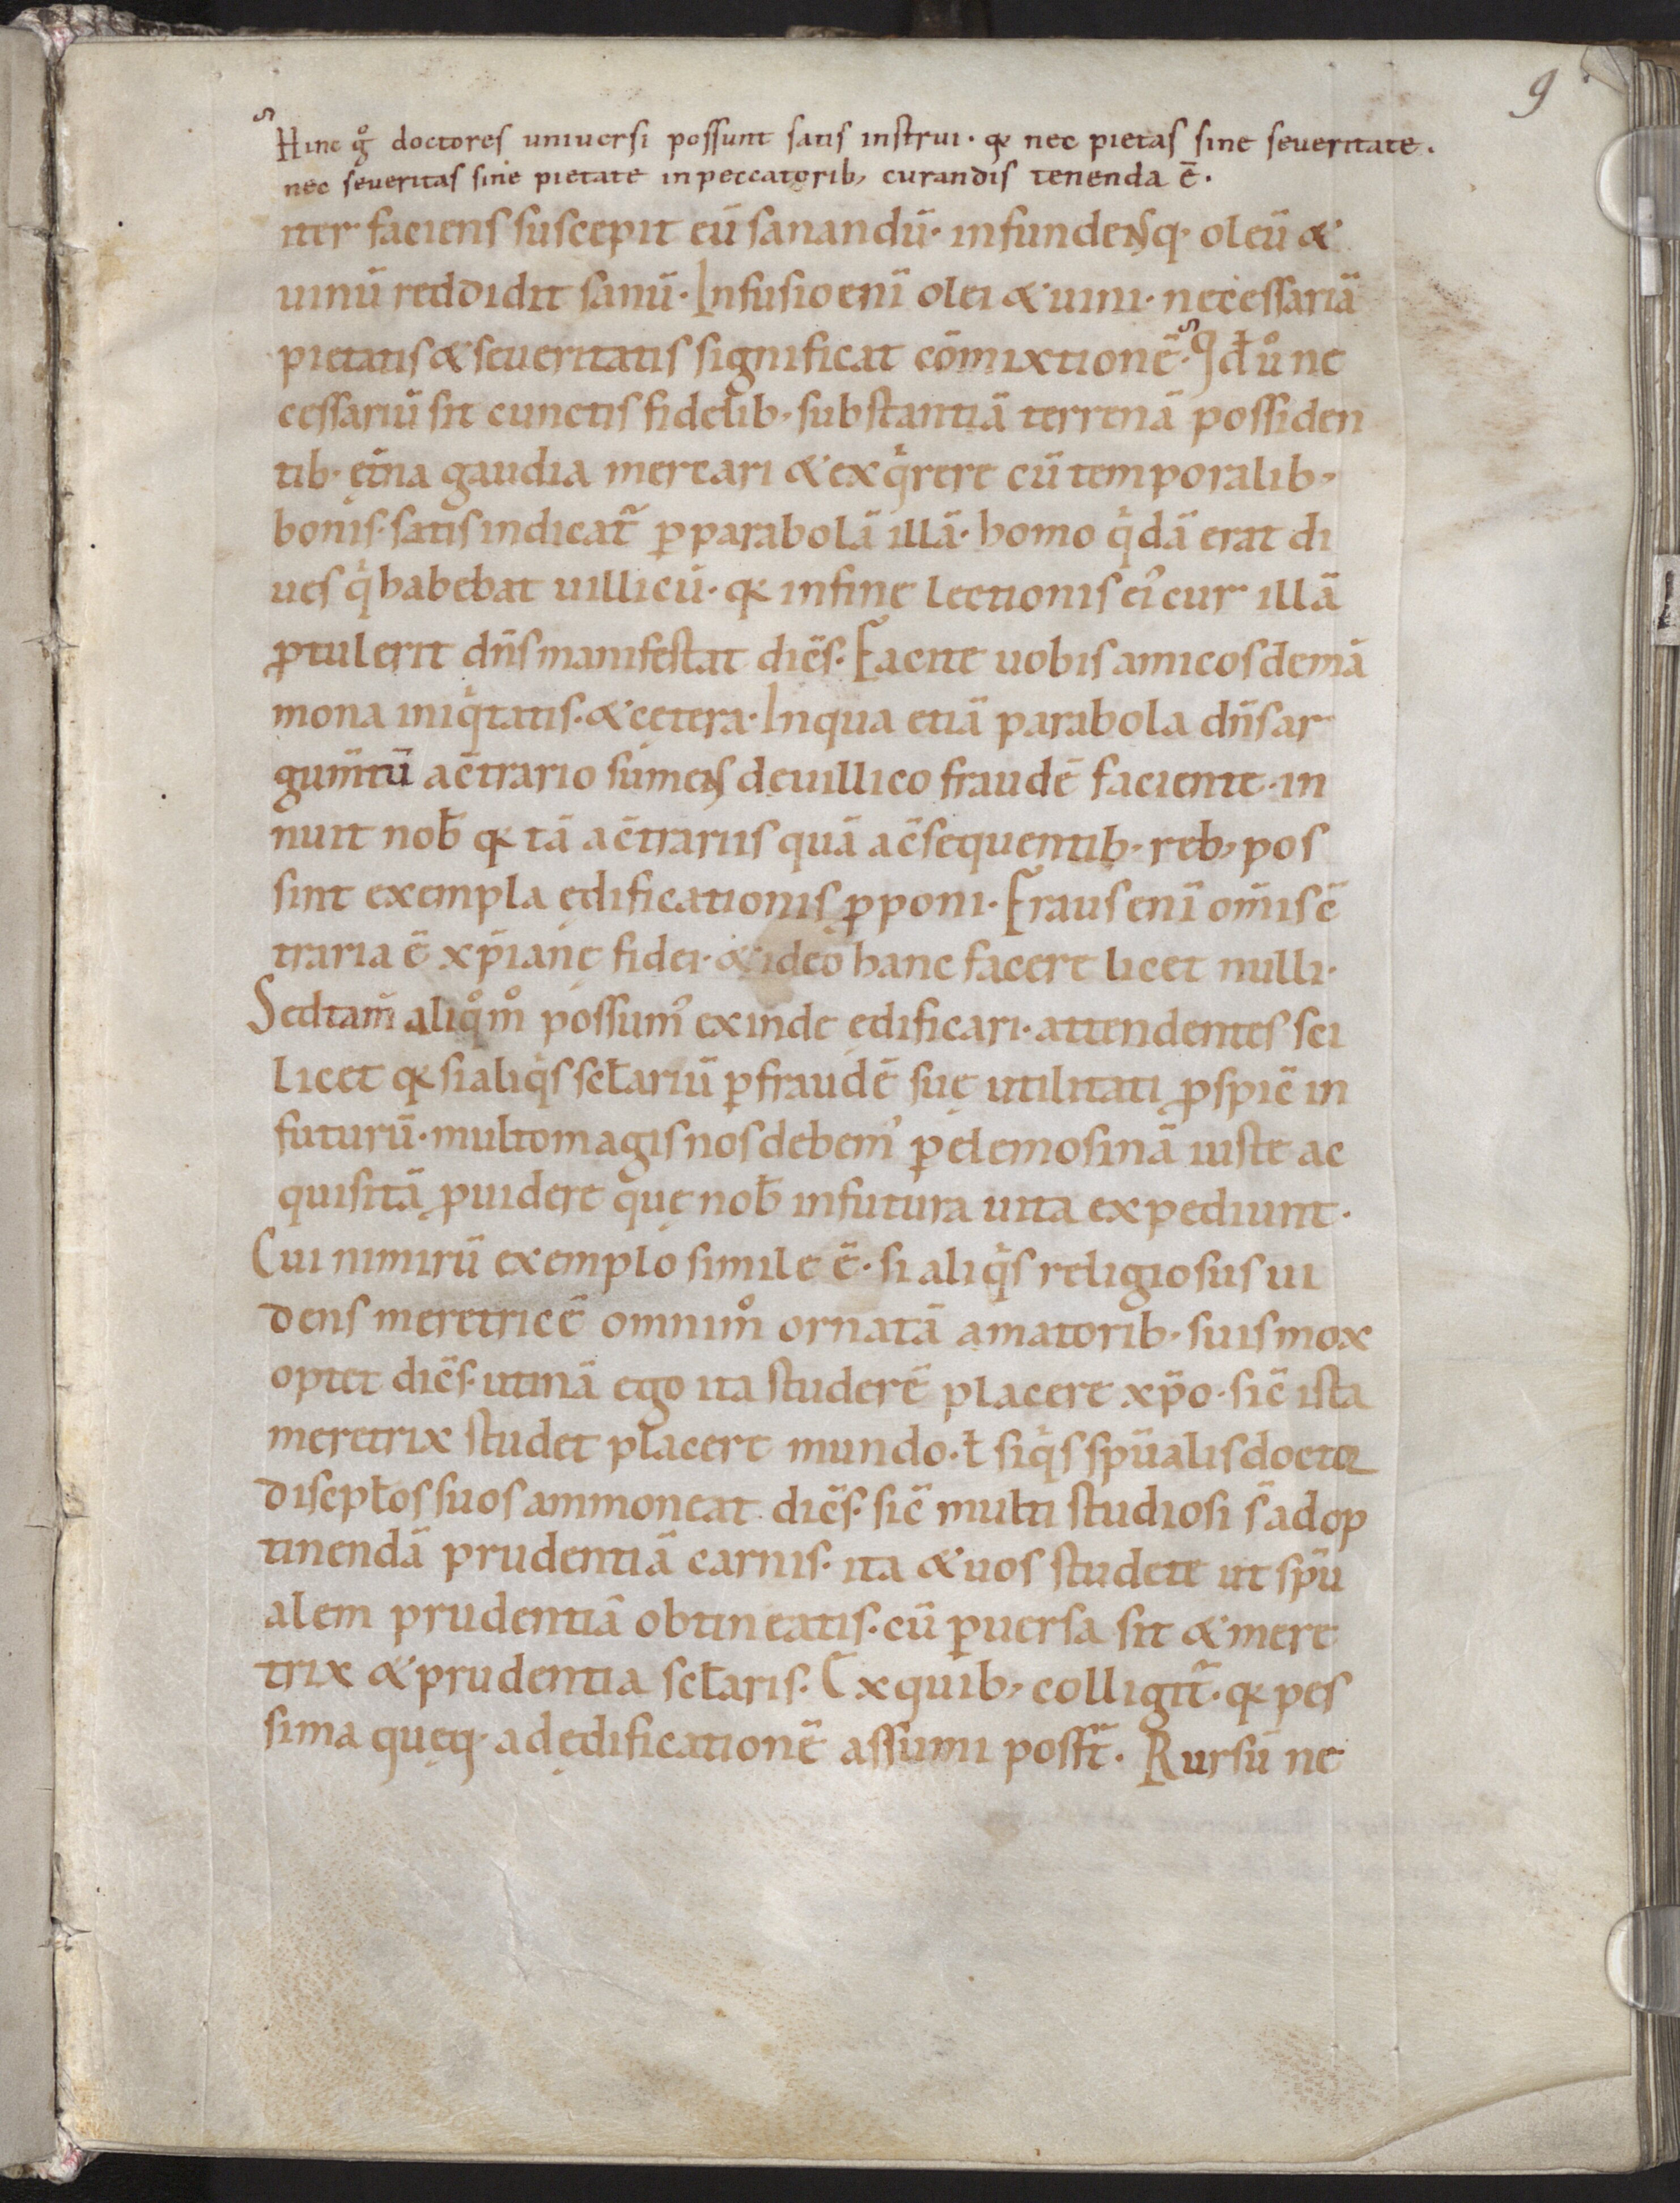 9
Hinc gͦ doctores uniuersi possunt satis instrui· qđ nec pietas sine seueritate.
nec seueritas sine pietate in peccatorib; curandis tenenda ē.
iter faciens suscepit eū sanandū· infundensq; oleū &
uinū reddidit sanū· Infusio enī olei & uini· necessariā
pietatis & seueritatis significat cōmixtionē· Qđ uͦ ne
cessariū sit cunctis fidelib; substantiā terrenā possiden
tib· ęt̄na gaudia mercari & exqͥrere cū temporalib;
bonis· satis indicat̄ ꝑ parabolā illā· homo qͥdā erat di
ues qͥ habebat uillicū· qđ in fine lectionis ei᾿ cur illā
ꝓtulerit dn̄s manifestat dic̄s· Facite uobis amicos de mā
mona iniqͥtatis· & cętera· In qua etiā parabola dn̄s ar
gum̄tū a c̄trario sumens de uillico fraudē faciente· in
nuit nob̄ qđ tā a c̄trariis quā a c̄sequentib; reb; pos
sint exempla ędificationis ꝓponi· Fraus enī om̄is c̄
traria ē xp̄ianę fidei· & ideo hanc facere licet nulli·
Sed tam̄ aliqͦm̊ possum᾿ exinde ędificari· attendentes sci
licet qđ si aliqͥs scł̄ariū ꝑ fraudē suę utilitati ꝓspic̄ in
futurū· multo magis nos debem᾿ ꝑ elemosinā iuste ac
quisitā ꝓuidere quę nob̄ in futura uita expediunt·
Cui nimirū exemplo simile ē· si aliqͥs religiosus ui
dens meretricē omnim̊ ornatā amatorib; suis mox
optet dic̄s· utinā ego ita studerē placere xp̄o· sic̄ ista
meretrix studet placere mundo· ł siqͥs sp̄ualis doctor
discipłos suos ammoneat dic̄s· sic̄ multi studiosi s̄ ad op
tinendā prudentiā carnis· ita & uos studete ut sp̄u
alem prudentiā obtineatis· cū ꝑuersa sit & mere
trix & prudentia scł̄aris· Ex quib; colligit̄· qđ pes
sima quęq; ad ędificationē assumi posst̄· Rursū ne